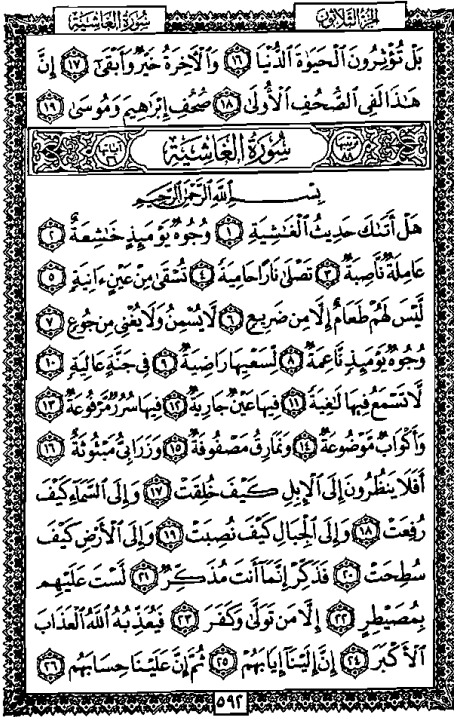 سُورَةُ الغَاشِيَةِ الجُزءُ الثَّلَاثُونَ
بَلْ تُؤْثِرُونَ الْحَيَوٰةَ الدُّنْيَا ١٦ وَالْآخِرَةُ خَيْرٌ وَأَبْقَىٰ ١٧ إِنَّ
هَٰذَا لَفِي الصُّحُفِ الْأُولَىٰ ١٨ صُحُفِ إِبْرَاهِيمَ وَمُوسَىٰ ١٩
ترتيبها ٨٨ سُورَةُ الغَاشِيَةِ آياتها ٢٦
بِسْمِ اللَّهِ الرَّحْمَٰنِ الرَّحِيمِ
هَلْ أَتَىٰكَ حَدِيثُ الْغَٰشِيَةِ ١ وُجُوهٌ يَوْمَئِذٍ خَٰشِعَةٌ ٢
عَامِلَةٌ نَّاصِبَةٌ ٣ تَصْلَىٰ نَارًا حَامِيَةً ٤ تُسْقَىٰ مِنْ عَيْنٍ ءَانِيَةٍ ٥
لَّيْسَ لَهُمْ طَعَامٌ إِلَّا مِن ضَرِيعٍ ٦ لَّا يُسْمِنُ وَلَا يُغْنِي مِن جُوعٍ ٧
وُجُوهٌ يَوْمَئِذٍ نَّاعِمَةٌ ٨ لِّسَعْيِهَا رَاضِيَةٌ ٩ فِي جَنَّةٍ عَالِيَةٍ ١٠
لَّا تَسْمَعُ فِيهَا لَٰغِيَةً ١١ فِيهَا عَيْنٌ جَارِيَةٌ ١٢ فِيهَا سُرُرٌ مَّرْفُوعَةٌ ١٣
وَأَكْوَابٌ مَّوْضُوعَةٌ ١٤ وَنَمَارِقُ مَصْفُوفَةٌ ١٥ وَزَرَابِيُّ مَبْثُوثَةٌ ١٦
أَفَلَا يَنظُرُونَ إِلَى الْإِبِلِ كَيْفَ خُلِقَتْ ١٧ وَإِلَى السَّمَاءِ كَيْفَ
رُفِعَتْ ١٨ وَإِلَى الْجِبَالِ كَيْفَ نُصِبَتْ ١٩ وَإِلَى الْأَرْضِ كَيْفَ
سُطِحَتْ ٢٠ فَذَكِّرْ إِنَّمَا أَنتَ مُذَكِّرٌ ٢١ لَّسْتَ عَلَيْهِم
بِمُصَيْطِرٍ ٢٢ إِلَّا مَن تَوَلَّىٰ وَكَفَرَ ٢٣ فَيُعَذِّبُهُ اللَّهُ الْعَذَابَ
الْأَكْبَرَ ٢٤ إِنَّ إِلَيْنَا إِيَابَهُمْ ٢٥ ثُمَّ إِنَّ عَلَيْنَا حِسَابَهُم ٢٦
٥٩٢